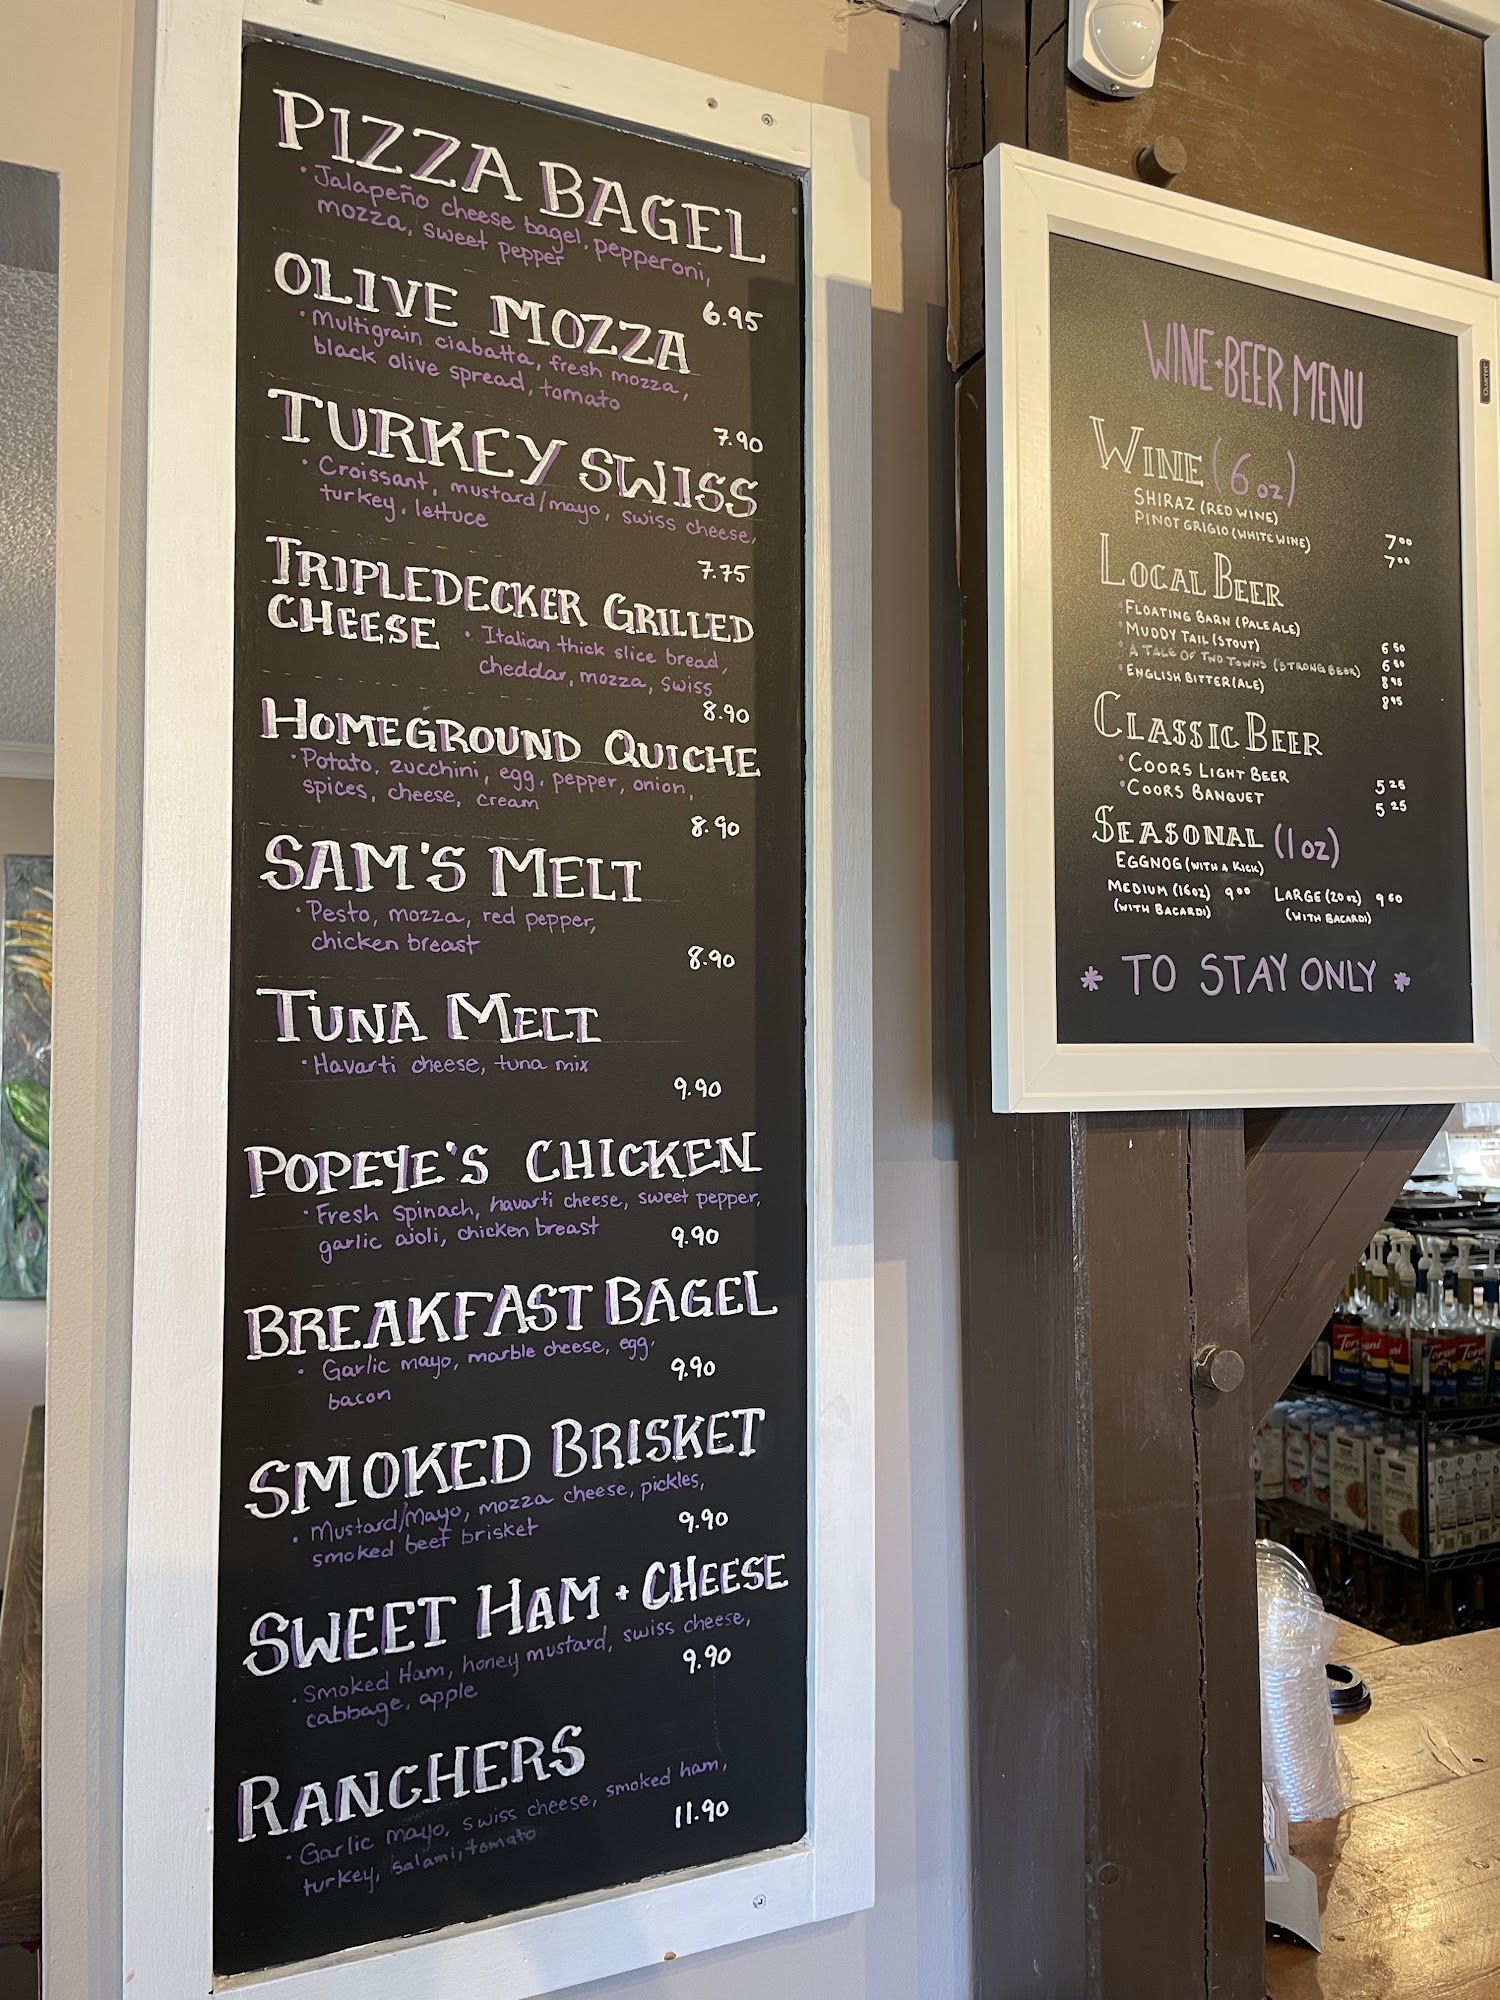 PIZZA BAGEL
• Jalapeño cheese bagel, pepperoni,
mozza, sweet pepper
6.95
OLIVE MOZZA
• Multigrain ciabatta, fresh mozza,
black olive spread, tomato
7.90
TURKEY SWISS
• Croissant, mustard/mayo, swiss cheese,
turkey, lettuce
7.75
TRIPLEDECKER GRILLED
CHEESE
• Italian thick slice bread,
cheddar, mozza, swiss
8.90
HOMEGROUND QUICHE
• Potato, zucchini, egg, pepper, onion,
spices, cheese, cream
8.90
SAM'S MELT
• Pesto, mozza, red pepper,
chicken breast
8.90
TUNA MELT
• Havarti cheese, tuna mix
9.90
POPEYE'S CHICKEN
• Fresh spinach, havarti cheese, sweet pepper,
garlic aioli, chicken breast
9.90
BREAKFAST BAGEL
• Garlic mayo, marble cheese, egg,
bacon
9.90
SMOKED BRISKET
• Mustard/Mayo, mozza cheese, pickles,
smoked beef brisket
9.90
SWEET HAM + CHEESE
• Smoked Ham, honey mustard, swiss cheese,
cabbage, apple
9.90
RANCHERS
• Garlic mayo, swiss cheese, smoked ham,
turkey, salami, tomato
11.90
WINE + BEER MENU
WINE (6 oz)
SHIRAZ (RED WINE) 7⁰⁰
PINOT GRIGIO (WHITE WINE) 7⁰⁰
LOCAL BEER
• FLOATING BARN (PALE ALE) 6⁵⁰
• MUDDY TAIL (STOUT) 6⁵⁰
• A TALE OF TWO TOWNS (STRONG BEER) 8⁹⁵
• ENGLISH BITTER (ALE) 8⁹⁵
CLASSIC BEER
• COORS LIGHT BEER 5²⁵
• COORS BANQUET 5²⁵
SEASONAL (1 oz)
EGGNOG (WITH A KICK)
MEDIUM (16oz) 9⁰⁰ LARGE (20 oz) 9⁶⁰
(WITH BACARDI) (WITH BACARDI)
* TO STAY ONLY *
Quartet
Torani